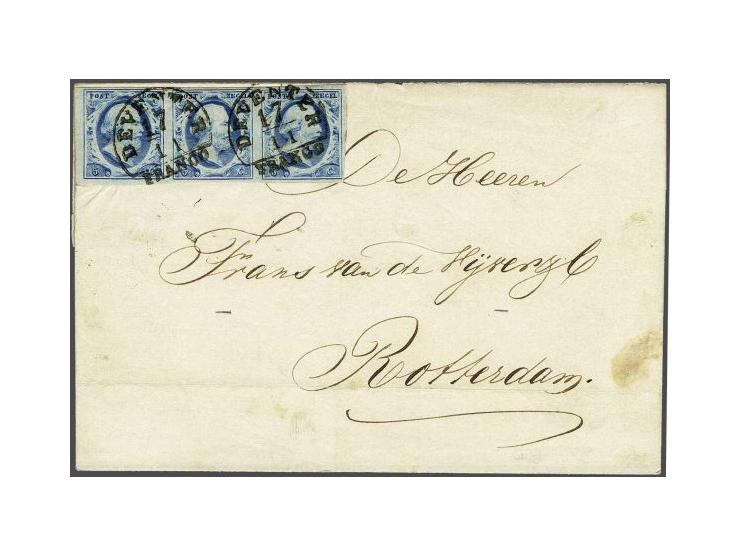 POST ZEGEL POST ZEGEL POST ZEGEL
DEVENTER DEVENTER
17 17
11 11
FRANCO FRANCO
5 C. 5 C. 5 C.
De Heeren
Frans van de
Rotterdam.